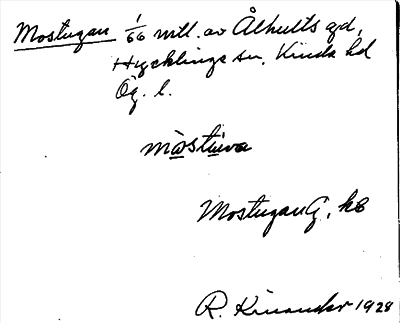 Mostugan 1/66 mtl. av Ålhults gd,
Hycklinge sn. Kinda hd
Ög. l.
mωstuva
Mostugan G. kb
R. Kinander 1928